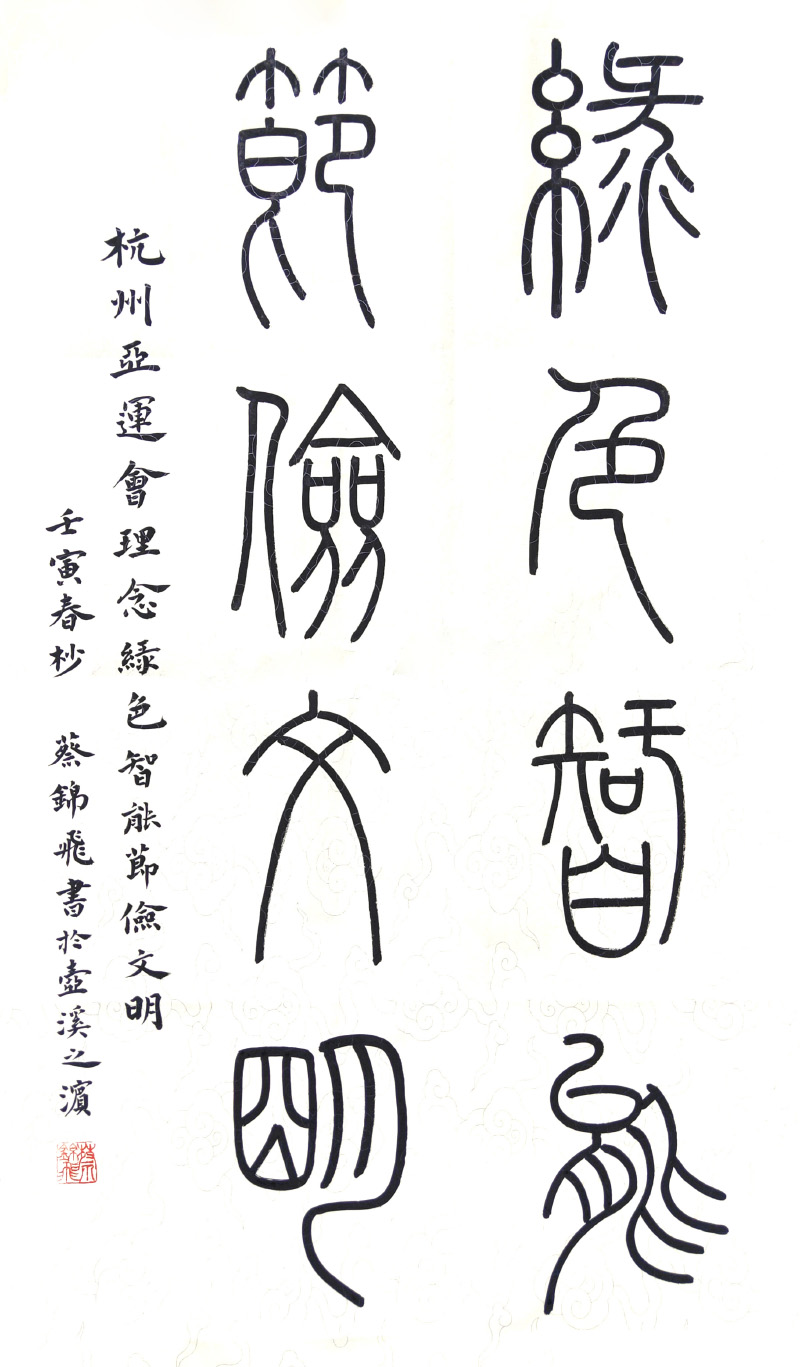 綠色智能
節儉文明
杭州亞運會理念綠色智能節儉文明
壬寅春杪 蔡錦飛書於壺溪之濱